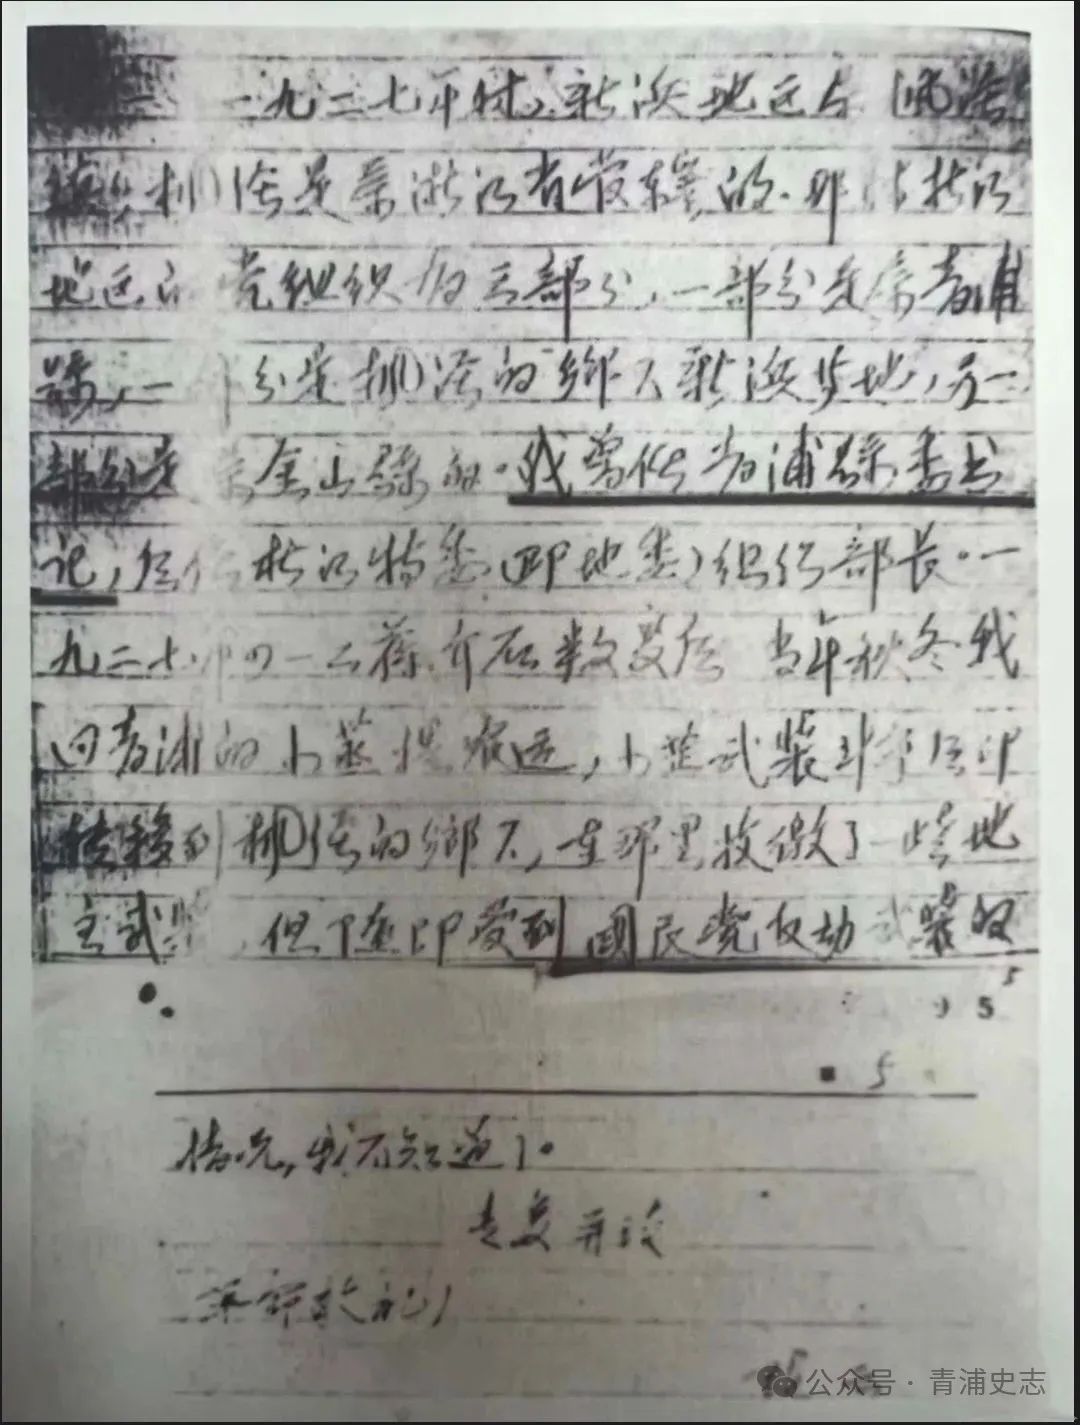 一九二七年时，新浜地区与枫泾
枫泾是属浙江省管辖的．那时松江
地区的党组织分三部分，一部分是属青浦
县，一部分是枫泾的乡下新浜等地，另一
部分是属金山县的．我曾任青浦县委书
记，后任松江特委（即地委）组织部长。一
九二七年四一二蒋介石叛变后 当年秋冬我
回青浦的小蒸搞农运，小蒸武装斗争后即
转移到枫泾的乡下，在那里收缴了一些地
主武装，但随即受到国民党反动武装的
5
5
5
情况，我不知道了。
专复并致
革命敬礼！
公众号·青浦史志